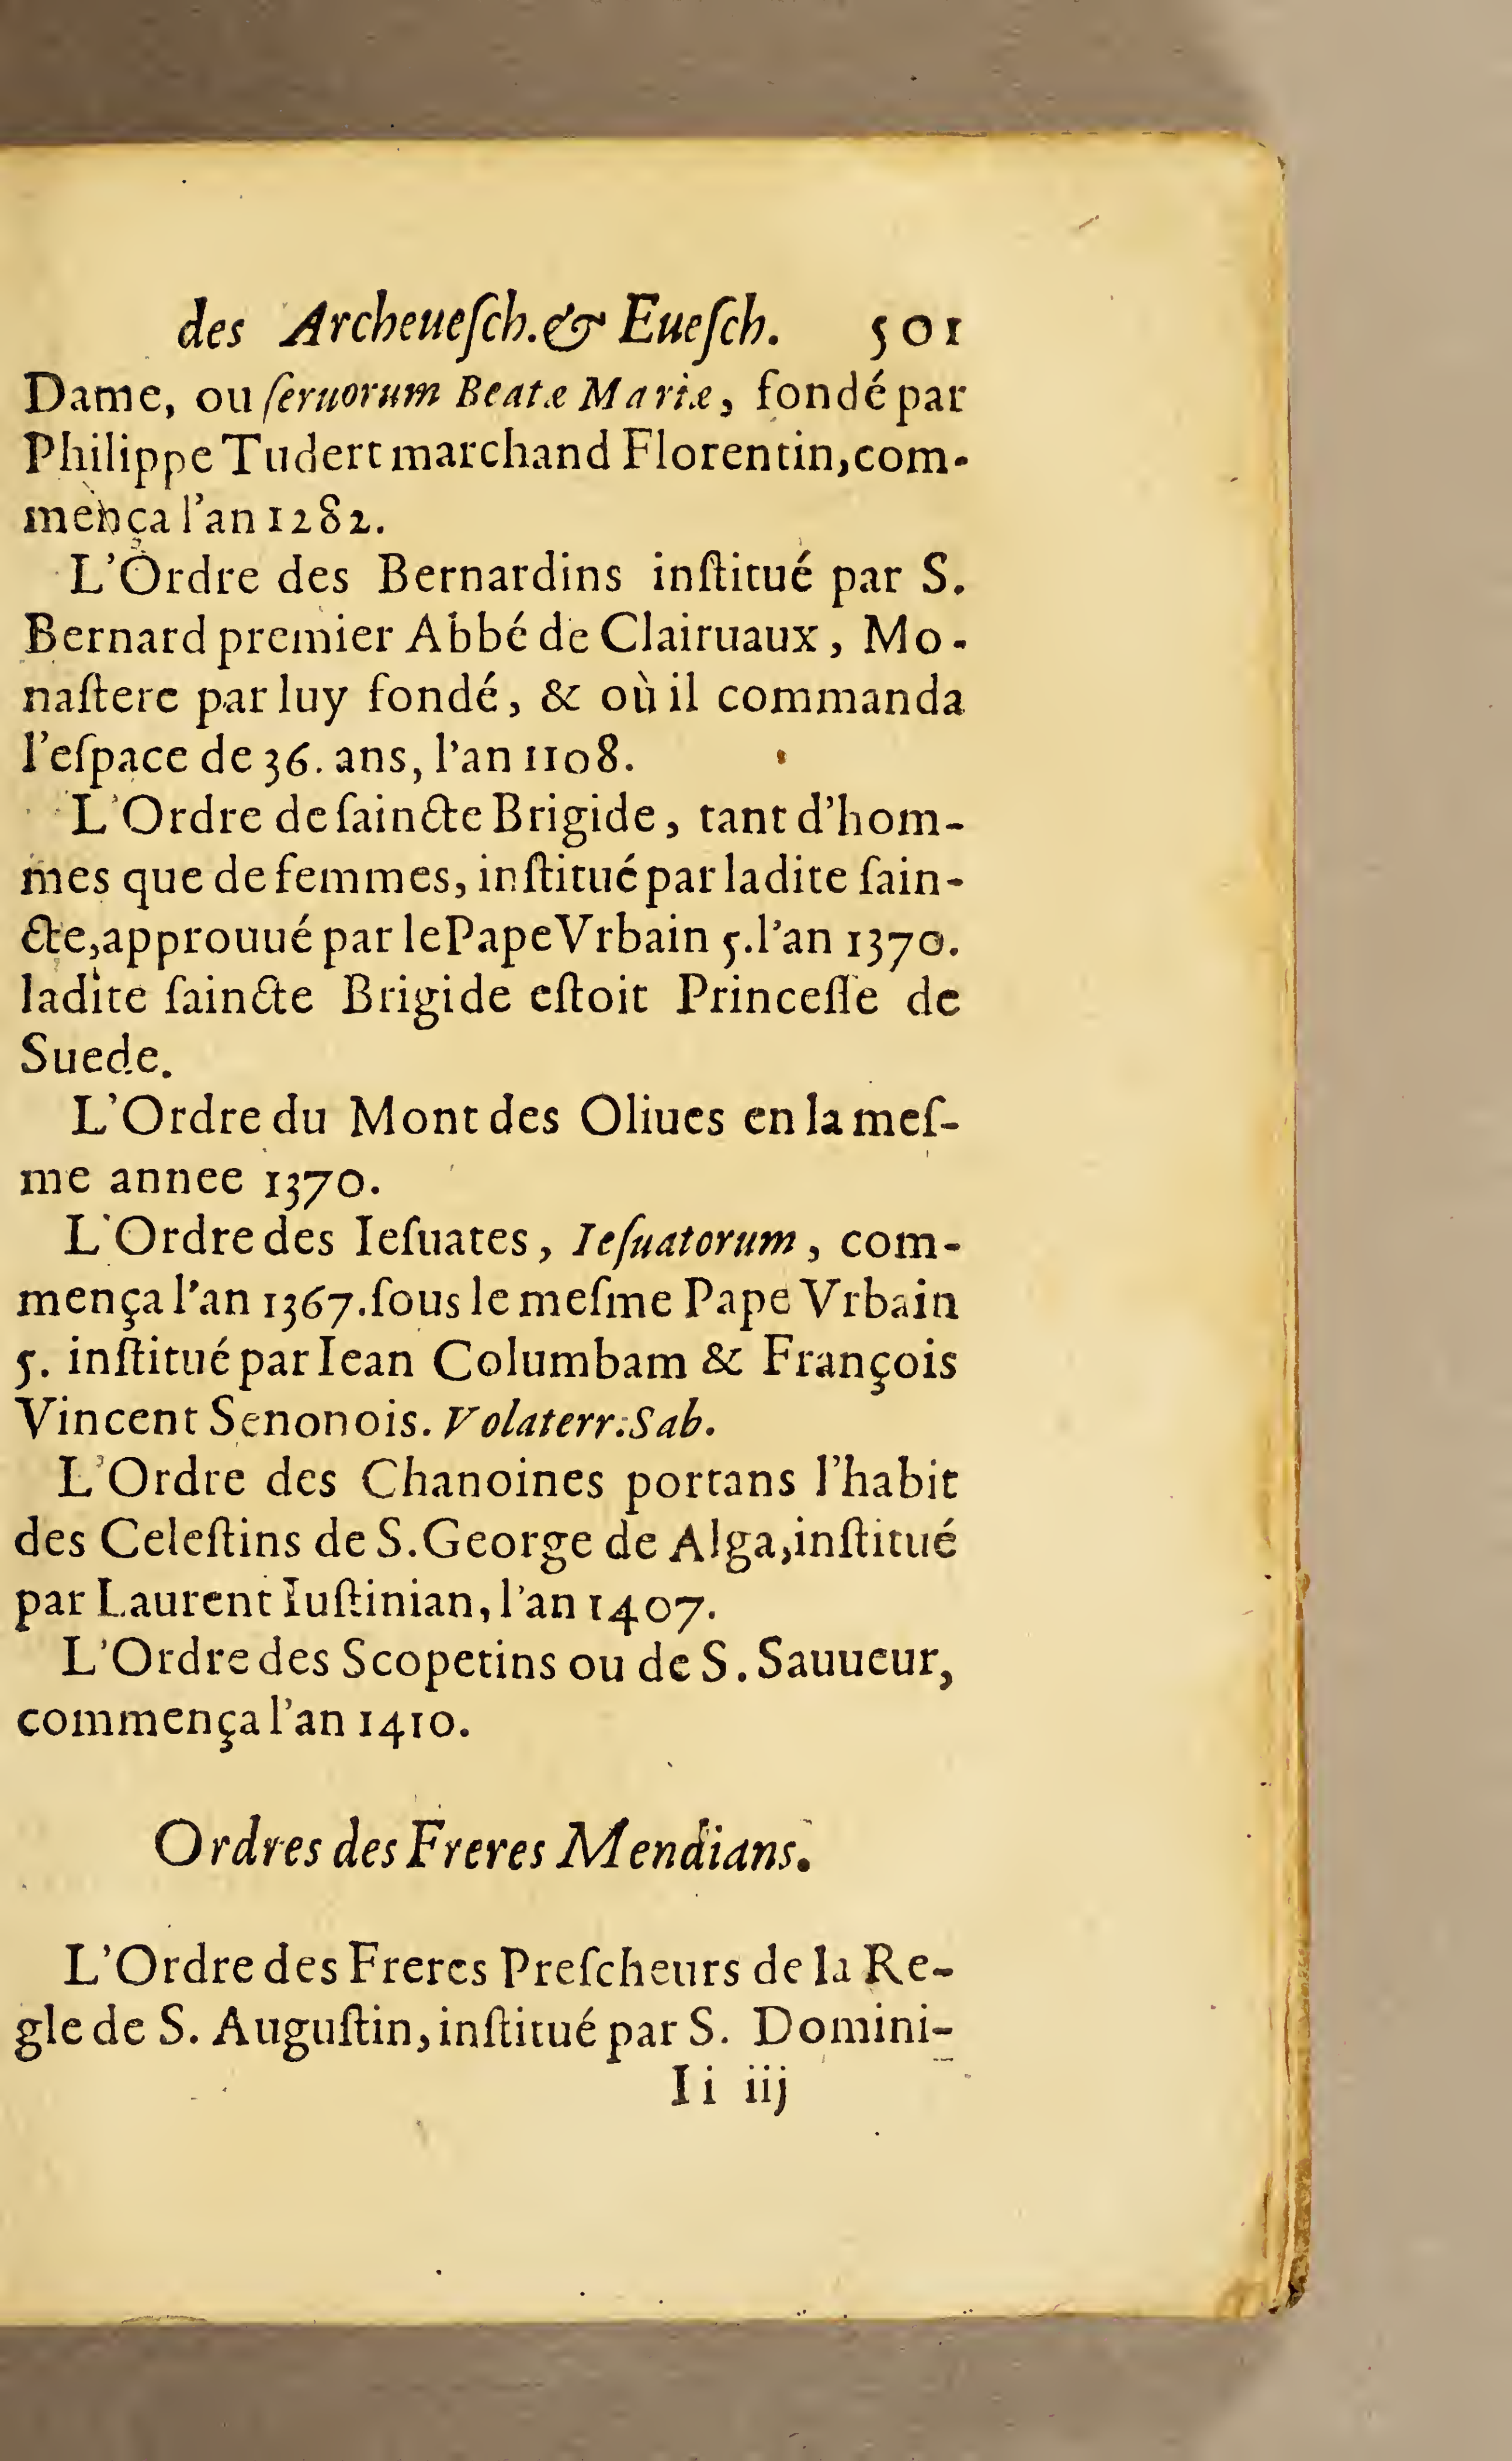 des Archeueſch. & Eueſch. 501
Dame, ou ſeruorum Beatæ Mariæ, fondé par
Philippe Tudert marchand Florentin, com-
mença l'an 1282.
L'Ordre des Bernardins inſtitué par S.
Bernard premier Abbé de Clairuaux, Mo-
naſtere par luy fondé, & où il commanda
l'eſpace de 36. ans, l'an 1108.
L'Ordre de ſaincte Brigide, tant d'hom-
mes que de femmes, inſtitué par ladite ſain-
cte, approuué par le Pape Vrbain 5. l'an 1370.
ladite ſaincte Brigide eſtoit Princeſſe de
Suede.
L'Ordre du Mont des Oliues en la meſ-
me annee 1370.
L'Ordre des Ieſuates, Ieſuatorum, com-
mença l'an 1367. ſous le meſme Pape Vrbain
5. inſtitué par Iean Columbam & François
Vincent Senonois. Volaterr: Sab.
L'Ordre des Chanoines portans l'habit
des Celeſtins de S. George de Alga, inſtitué
par Laurent Iuſtinian, l'an 1407.
L'Ordre des Scopetins ou de S. Sauueur,
commença l'an 1410.
Ordres des Freres Mendians.
L'Ordre des Freres Preſcheurs de la Re-
gle de S. Auguſtin, inſtitué par S. Domini-
Ii iij